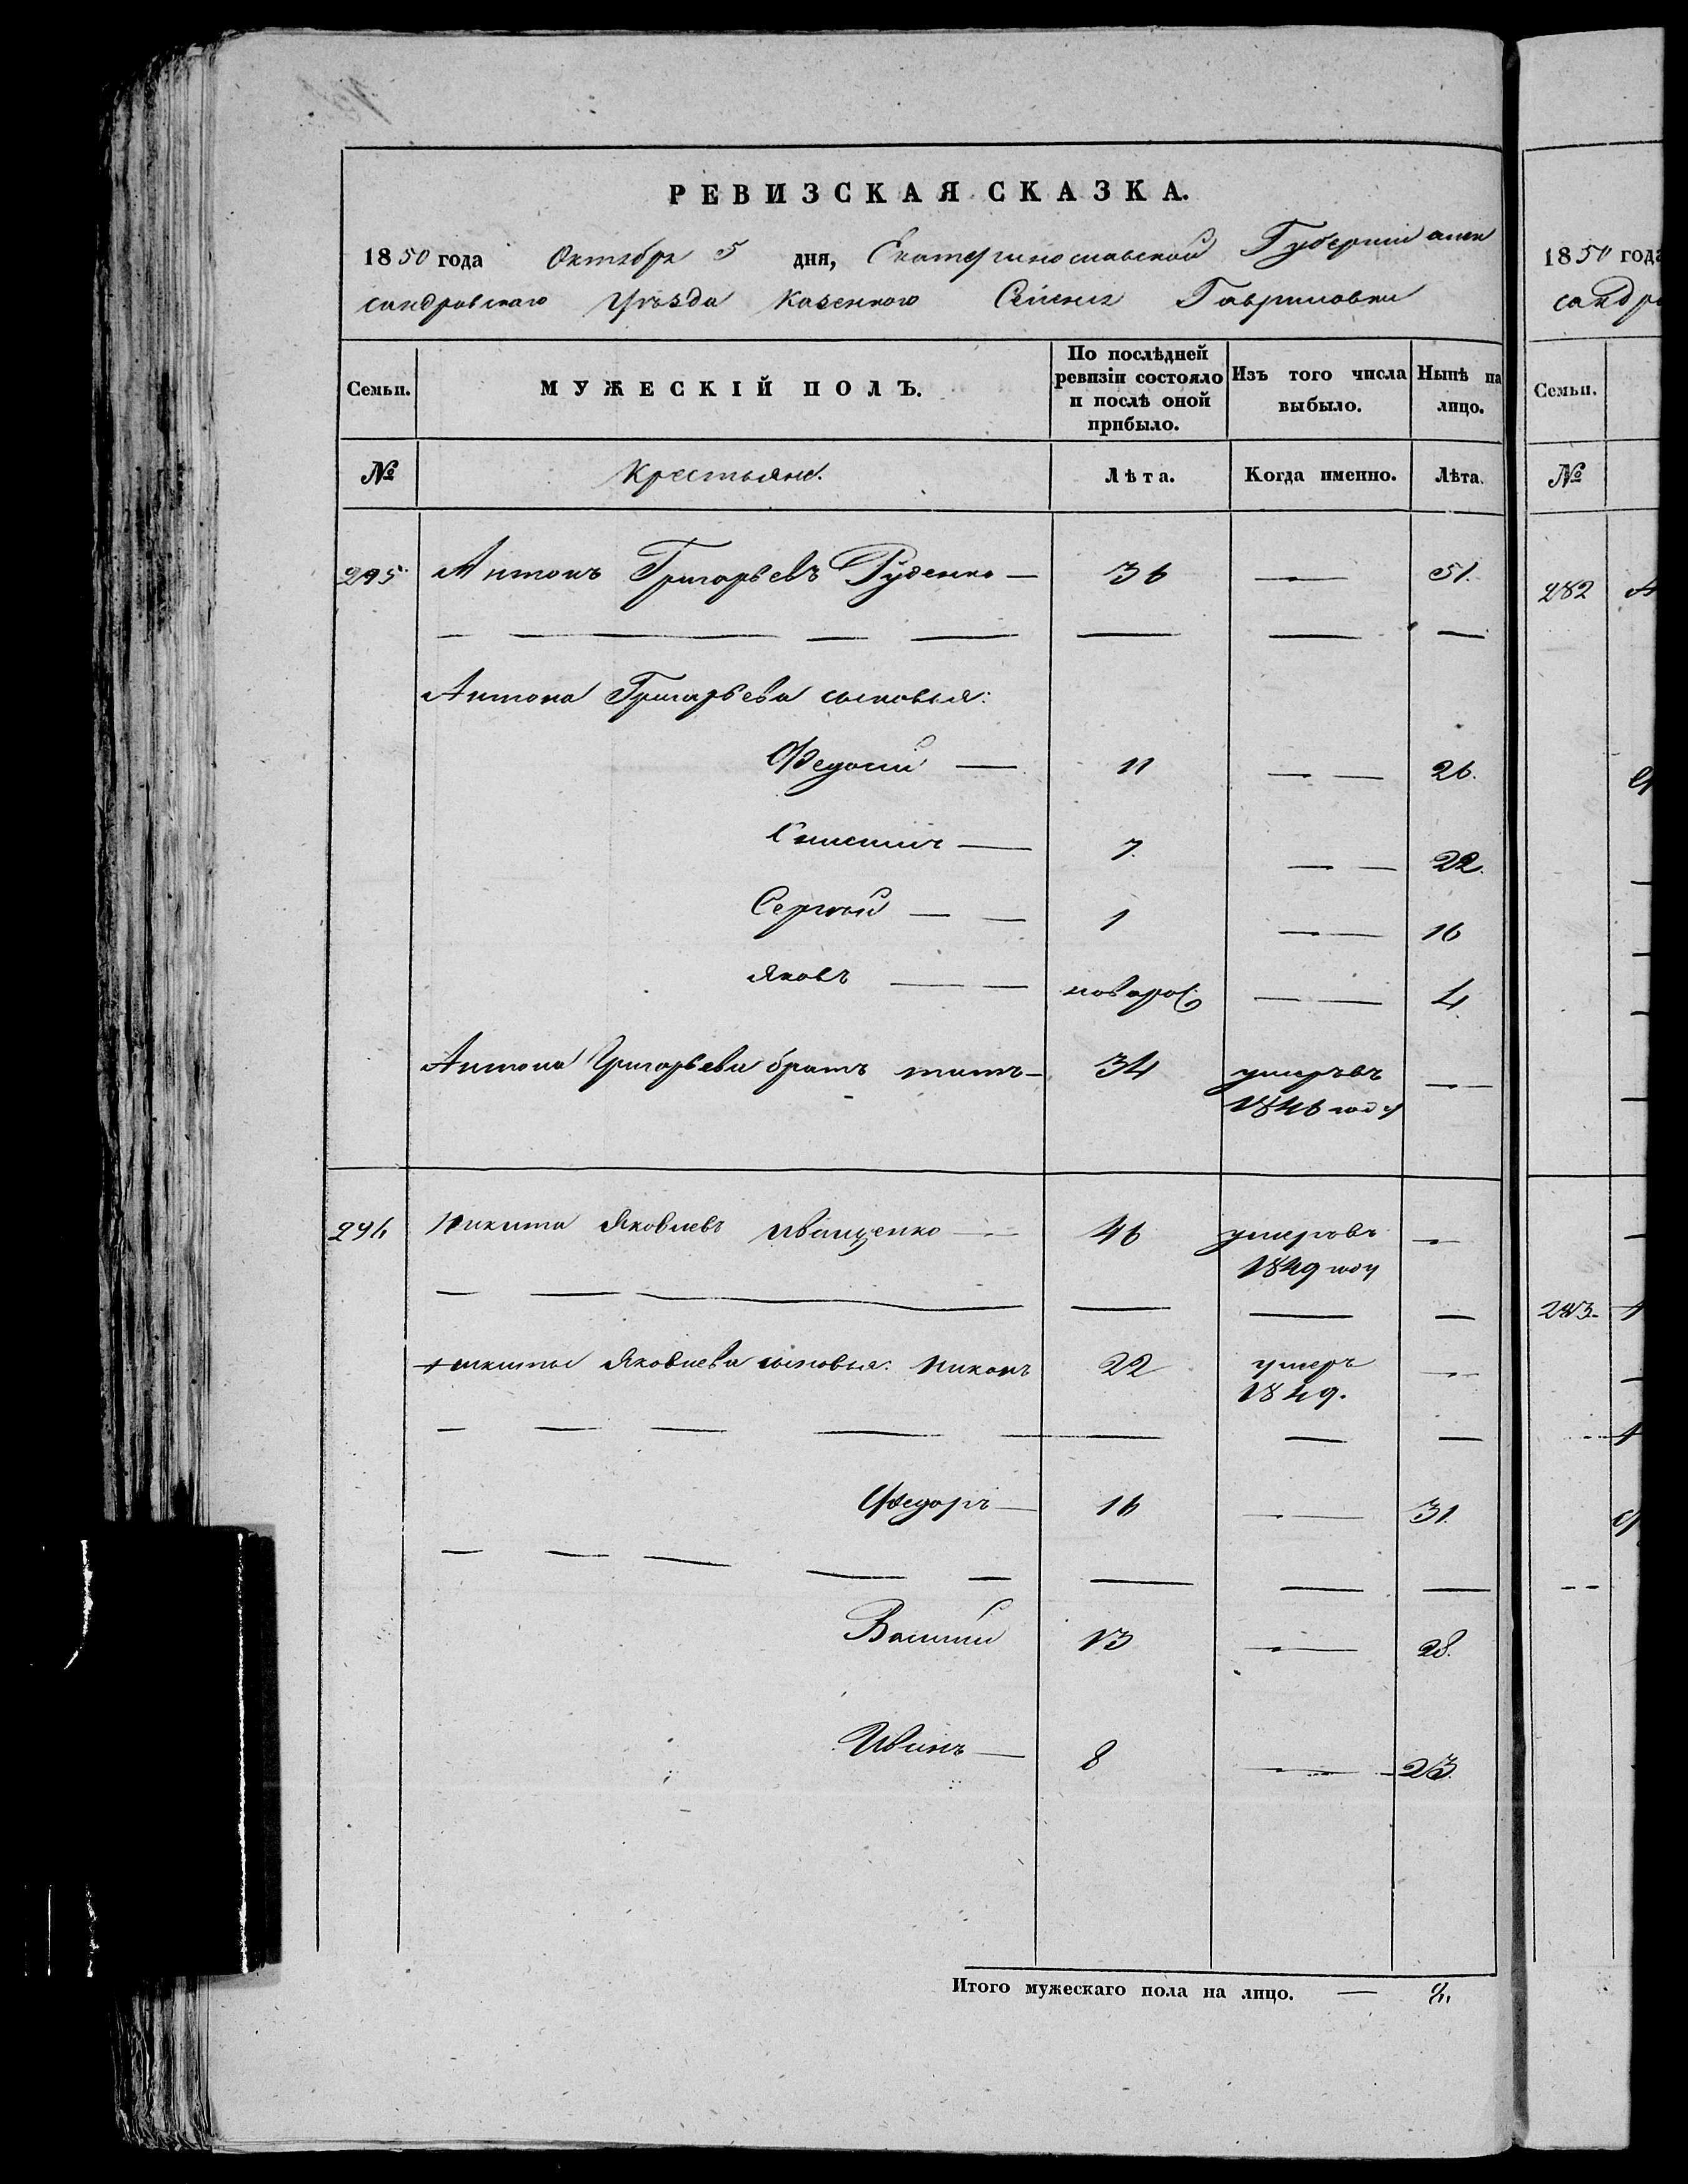 РЕВИЗСКАЯ СКАЗКА.
1850 года Октября 5 дня, Екатеринославской Губернии алек
сандровскаго Уѣзда Казенного Селенія Гавриловки
Семьи. МУЖЕСКІЙ ПОЛЪ. По послѣдней ревизіи состояло и послѣ оной прибыло. Изъ того числа выбыло. Нынѣ на лицо.
№ Крестьяне. Лѣта. Когда именно. Лѣта.
295 Антонъ Григорьевъ Руденко — 36 — 51.
Антона Григорьева сыновья:
Федосій — 11 — — 26.
7. — — 22.
Сергѣй — — 1 — — 16
Яковъ — — новорож — — 4
Антона Григорьева братъ титъ — 34 умеръ въ —
1846 году
296 Никита Яковлевъ Иващенко — 46 умеръ въ —
1849 году
Никиты Яковлева сыновья: Никонъ 22 умеръ —
1849.
Федоръ — 16 — — 31.
Василій 13 — — 28.
Иванъ — 8 — — 23.
Итого мужескаго пола на лицо. —
1850 года
сандро
Семьи.
№
282
283.